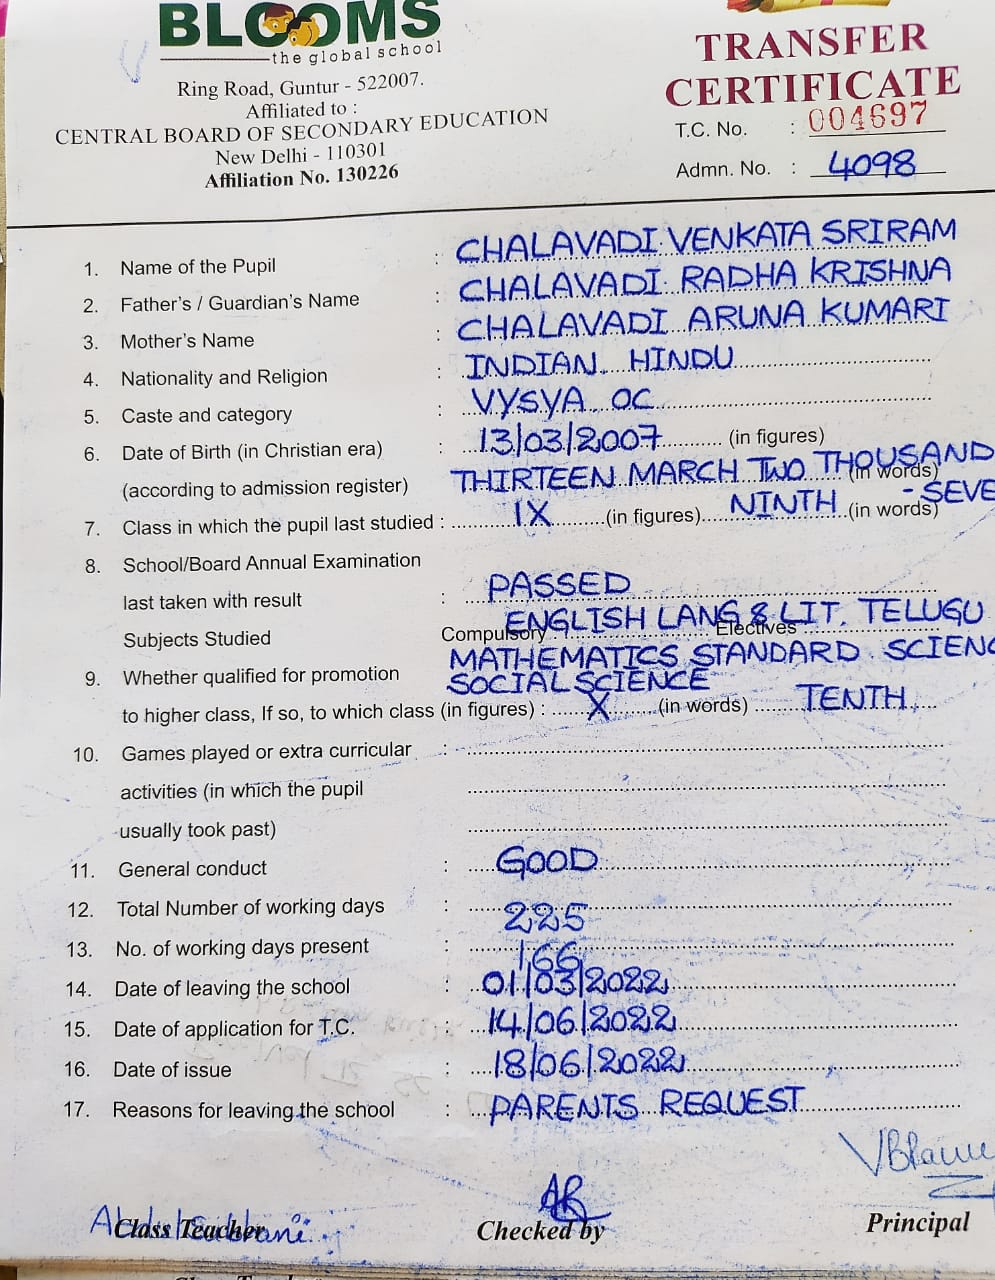 BLOOMS
the global school
Ring Road, Guntur - 522007.
Affiliated to :
CENTRAL BOARD OF SECONDARY EDUCATION
New Delhi - 110301
Affiliation No. 130226
TRANSFER
CERTIFICATE
T.C. No. : 004697
Admn. No. : 4098
1. Name of the Pupil : CHALAVADI VENKATA SRIRAM
2. Father's / Guardian's Name : CHALAVADI RADHA KRISHNA
3. Mother's Name : CHALAVADI ARUNA KUMARI
4. Nationality and Religion : INDIAN HINDU
5. Caste and category : VYSYA OC
6. Date of Birth (in Christian era) : 13/03/2007 (in figures)
(according to admission register) THIRTEEN MARCH TWO THOUSAND (in words)
- SEVE
7. Class in which the pupil last studied : IX (in figures) NINTH (in words)
8. School/Board Annual Examination
last taken with result : PASSED
Subjects Studied Compulsory ENGLISH LANG & LIT. Electives TELUGU
MATHEMATICS STANDARD SCIENC
9. Whether qualified for promotion SOCIAL SCIENCE
to higher class, If so, to which class (in figures) : X (in words) TENTH
10. Games played or extra curricular :
activities (in which the pupil
usually took past)
11. General conduct : GOOD
12. Total Number of working days : 225
13. No. of working days present : 166
14. Date of leaving the school : 01/03/2022
15. Date of application for T.C. : 14/06/2022
16. Date of issue : 18/06/2022
17. Reasons for leaving the school : PARENTS REQUEST
Class Teacher
Checked by
Principal